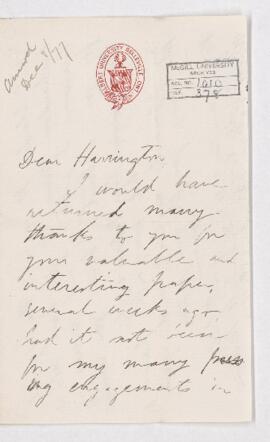 Dec 8/77
ALBERT UNIVERSITY BELLEVILLE ONT
McGILL UNIVERSITY
ARCHIVES
ACC. NO. 1010
REF. 378
Dear Harrington
I would have
returned many
thanks to you for
your valuable and
interesting paper,
several weeks ago,
had it not been
for my many press
ing engagements in